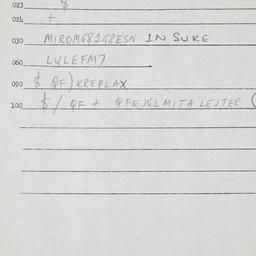 023 $
024 +
030 MIROM68168ESN IN SUKE
060 LYLEFM7
090 $ QF) KREPLAX
100 $/ QF + QFEJGLMITA LEJTER (